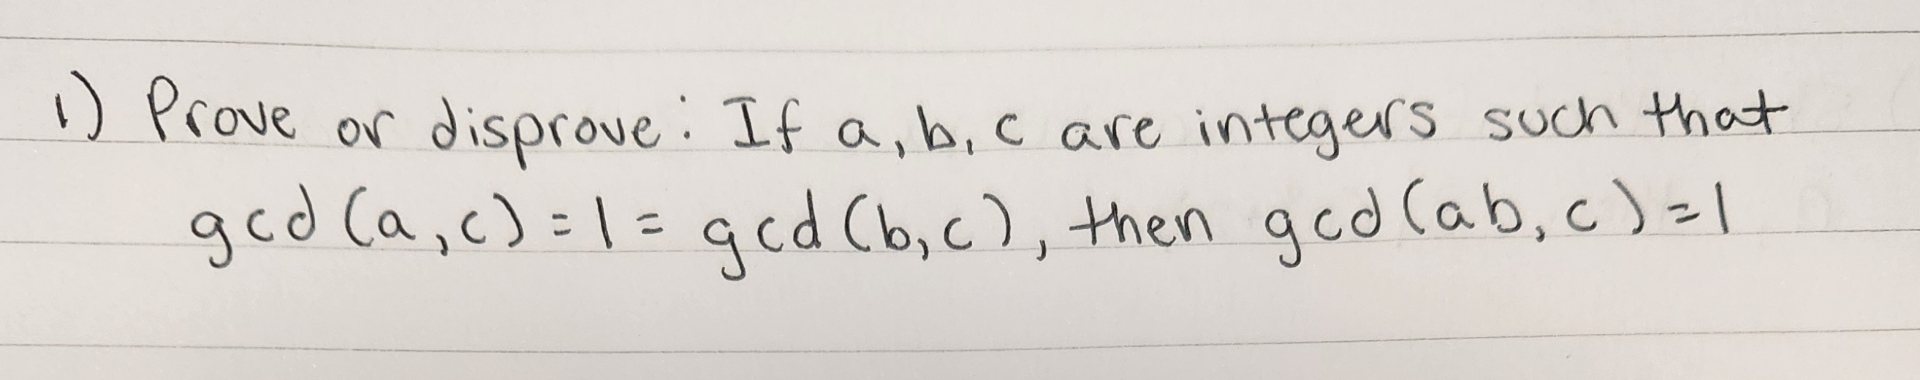 1) Prove or disprove: If a, b, c are integers such that
gcd (a, c) = 1 = gcd (b, c), then gcd (ab, c) = 1